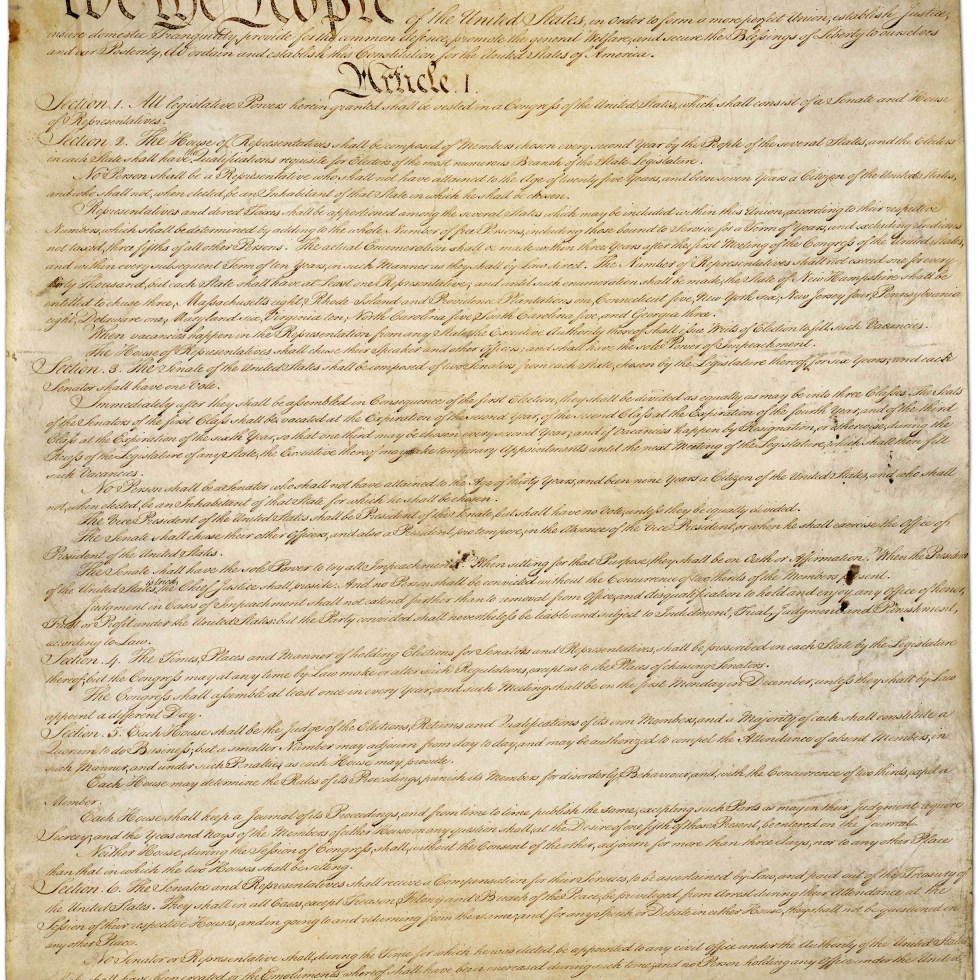 We the People of the United States, in Order to form a more perfect Union, establish Justice,
insure domestic Tranquility, provide for the common defence, promote the general Welfare, and secure the Blessings of Liberty to ourselves
and our Posterity, do ordain and establish this Constitution for the United States of America.
Article. I.
Section. 1. All legislative Powers herein granted shall be vested in a Congress of the United States, which shall consist of a Senate and House
of Representatives.
Section. 2. The House of Representatives shall be composed of Members chosen every second Year by the People of the several States, and the Electors
in each State shall have the Qualifications requisite for Electors of the most numerous Branch of the State Legislature.
No Person shall be a Representative who shall not have attained to the Age of twenty five Years, and been seven Years a Citizen of the United States,
and who shall not, when elected, be an Inhabitant of that State in which he shall be chosen.
Representatives and direct Taxes shall be apportioned among the several States which may be included within this Union, according to their respective
Numbers, which shall be determined by adding to the whole Number of free Persons, including those bound to Service for a Term of Years, and excluding Indians
not taxed, three fifths of all other Persons. The actual Enumeration shall be made within three Years after the first Meeting of the Congress of the United States,
and within every subsequent Term of ten Years, in such Manner as they shall by Law direct. The Number of Representatives shall not exceed one for every
thirty Thousand, but each State shall have at Least one Representative; and until such enumeration shall be made, the State of New Hampshire shall be
entitled to chuse three, Massachusetts eight, Rhode-Island and Providence Plantations one, Connecticut five, New-York six, New Jersey four, Pennsylvania
eight, Delaware one, Maryland six, Virginia ten, North Carolina five, South Carolina five, and Georgia three.
When vacancies happen in the Representation from any State, the Executive Authority thereof shall issue Writs of Election to fill such Vacancies.
The House of Representatives shall chuse their Speaker and other Officers; and shall have the sole Power of Impeachment.
Section. 3. The Senate of the United States shall be composed of two Senators from each State, chosen by the Legislature thereof, for six Years; and each
Senator shall have one Vote.
Immediately after they shall be assembled in Consequence of the first Election, they shall be divided as equally as may be into three Classes. The Seats
of the Senators of the first Class shall be vacated at the Expiration of the second Year, of the second Class at the Expiration of the fourth Year, and of the third
Class at the Expiration of the sixth Year, so that one third may be chosen every second Year; and if Vacancies happen by Resignation, or otherwise, during the
Recess of the Legislature of any State, the Executive thereof may make temporary Appointments until the next Meeting of the Legislature, which shall then fill
such Vacancies.
No Person shall be a Senator who shall not have attained to the Age of thirty Years, and been nine Years a Citizen of the United States, and who shall
not, when elected, be an Inhabitant of that State for which he shall be chosen.
The Vice President of the United States shall be President of the Senate, but shall have no Vote, unless they be equally divided.
The Senate shall chuse their other Officers, and also a President pro tempore, in the Absence of the Vice President, or when he shall exercise the Office of
President of the United States.
The Senate shall have the sole Power to try all Impeachments. When sitting for that Purpose, they shall be on Oath or Affirmation. When the President
of the United States is tried, the Chief Justice shall preside: And no Person shall be convicted without the Concurrence of two thirds of the Members present.
Judgment in Cases of Impeachment shall not extend further than to removal from Office, and disqualification to hold and enjoy any Office of honor,
Trust or Profit under the United States: but the Party convicted shall nevertheless be liable and subject to Indictment, Trial, Judgment and Punishment,
according to Law.
Section. 4. The Times, Places and Manner of holding Elections for Senators and Representatives, shall be prescribed in each State by the Legislature
thereof; but the Congress may at any time by Law make or alter such Regulations, except as to the Places of chusing Senators.
The Congress shall assemble at least once in every Year, and such Meeting shall be on the first Monday in December, unless they shall by Law
appoint a different Day.
Section. 5. Each House shall be the Judge of the Elections, Returns and Qualifications of its own Members, and a Majority of each shall constitute a
Quorum to do Business; but a smaller Number may adjourn from day to day, and may be authorized to compel the Attendance of absent Members, in
such Manner, and under such Penalties as each House may provide.
Each House may determine the Rules of its Proceedings, punish its Members for disorderly Behaviour, and, with the Concurrence of two thirds, expel a
Member.
Each House shall keep a Journal of its Proceedings, and from time to time publish the same, excepting such Parts as may in their Judgment require
Secrecy; and the Yeas and Nays of the Members of either House on any question shall, at the Desire of one fifth of those Present, be entered on the Journal.
Neither House, during the Session of Congress, shall, without the Consent of the other, adjourn for more than three days, nor to any other Place
than that in which the two Houses shall be sitting.
Section. 6. The Senators and Representatives shall receive a Compensation for their Services, to be ascertained by Law, and paid out of the Treasury of
the United States. They shall in all Cases, except Treason, Felony and Breach of the Peace, be privileged from Arrest during their Attendance at the
Session of their respective Houses, and in going to and returning from the same; and for any Speech or Debate in either House, they shall not be questioned in
any other Place.
No Senator or Representative shall, during the Time for which he was elected, be appointed to any civil Office under the Authority of the United States,
which shall have been created, or the Emoluments whereof shall have been increased during such time; and no Person holding any Office under the United